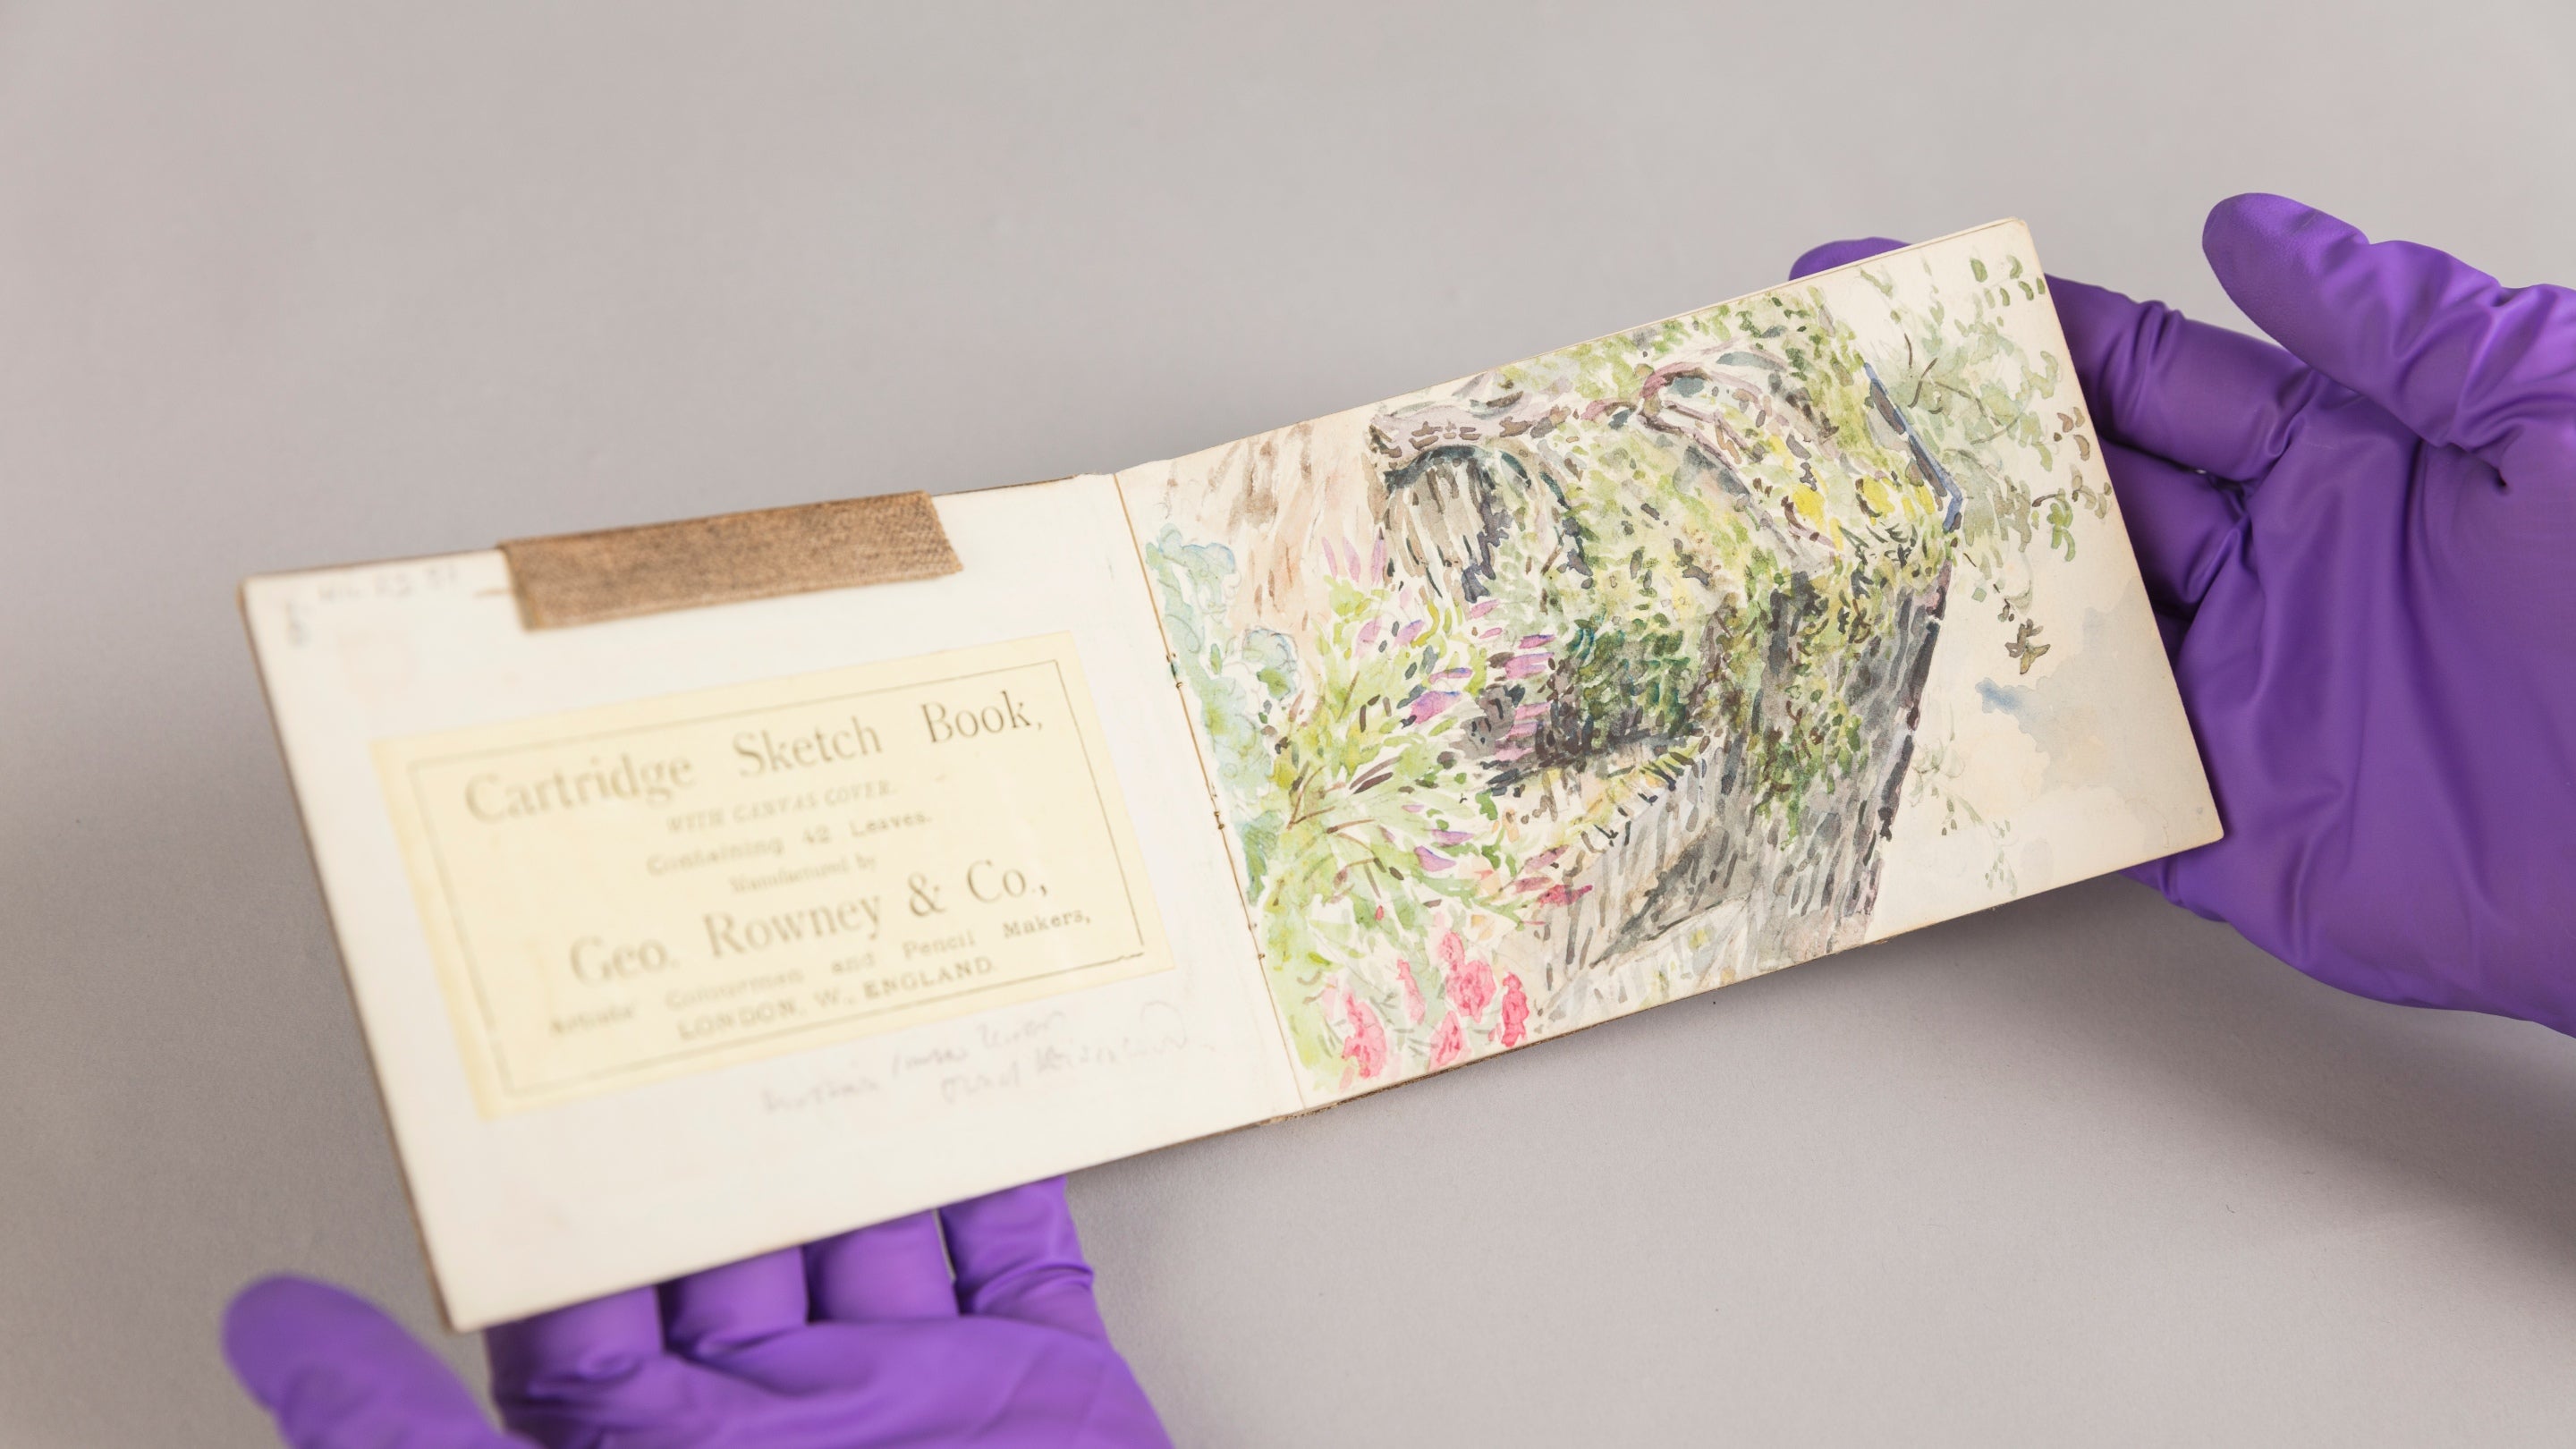 Cartridge Sketch Book,
WITH CANVAS COVER.
Containing 42 Leaves.
Manufactured by
Geo. Rowney & Co.,
Artists' Colourmen and Pencil Makers,
LONDON, W., ENGLAND.